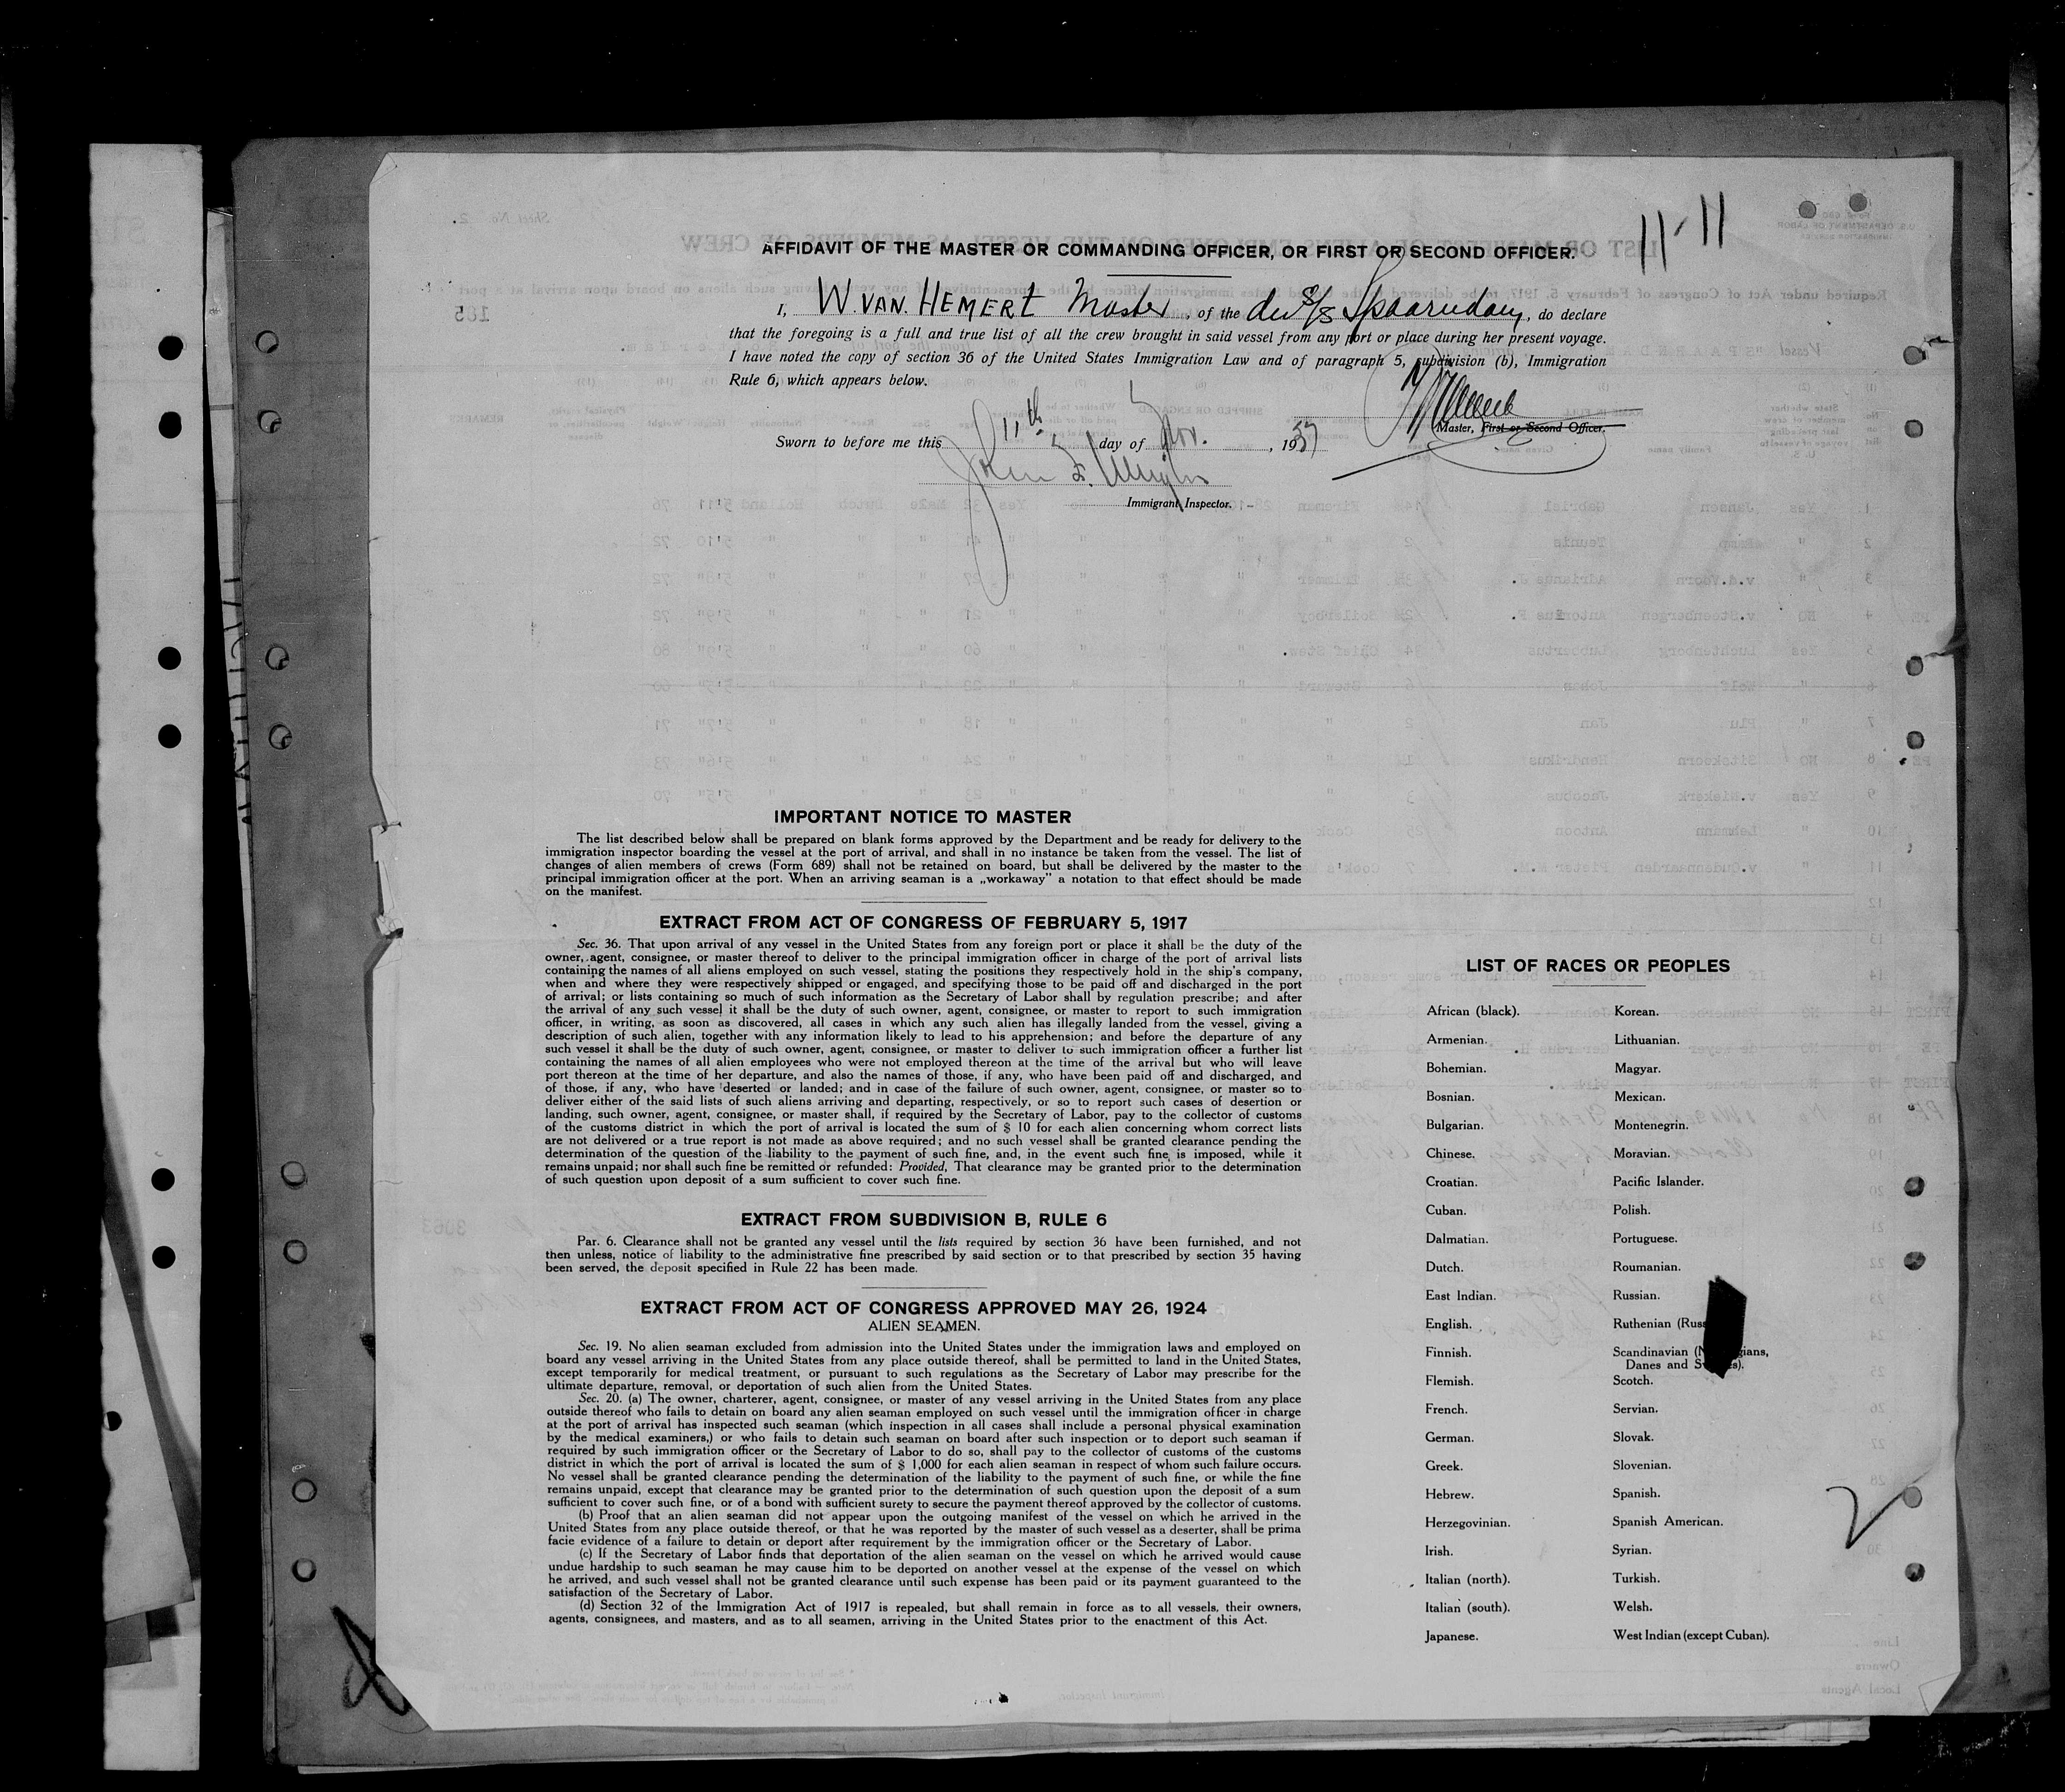 11-11
AFFIDAVIT OF THE MASTER OR COMMANDING OFFICER, OR FIRST OR SECOND OFFICER.
I, W. VAN. HEMERT Master, of the S/S Spaarndam, do declare
that the foregoing is a full and true list of all the crew brought in said vessel from any port or place during her present voyage.
I have noted the copy of section 36 of the United States Immigration Law and of paragraph 5, subdivision (b), Immigration
Rule 6, which appears below.
Master, First or Second Officer.
Sworn to before me this 11th day of Nov., 1937
Immigrant Inspector.
IMPORTANT NOTICE TO MASTER
The list described below shall be prepared on blank forms approved by the Department and be ready for delivery to the
immigration inspector boarding the vessel at the port of arrival, and shall in no instance be taken from the vessel. The list of
changes of alien members of crews (Form 689) shall not be retained on board, but shall be delivered by the master to the
principal immigration officer at the port. When an arriving seaman is a „workaway" a notation to that effect should be made
on the manifest.
EXTRACT FROM ACT OF CONGRESS OF FEBRUARY 5, 1917
Sec. 36. That upon arrival of any vessel in the United States from any foreign port or place it shall be the duty of the
owner, agent, consignee, or master thereof to deliver to the principal immigration officer in charge of the port of arrival lists
containing the names of all aliens employed on such vessel, stating the positions they respectively hold in the ship's company,
when and where they were respectively shipped or engaged, and specifying those to be paid off and discharged in the port
of arrival; or lists containing so much of such information as the Secretary of Labor shall by regulation prescribe; and after
the arrival of any such vessel it shall be the duty of such owner, agent, consignee, or master to report to such immigration
officer, in writing, as soon as discovered, all cases in which any such alien has illegally landed from the vessel, giving a
description of such alien, together with any information likely to lead to his apprehension; and before the departure of any
such vessel it shall be the duty of such owner, agent, consignee, or master to deliver to such immigration officer a further list
containing the names of all alien employees who were not employed thereon at the time of the arrival but who will leave
port thereon at the time of her departure, and also the names of those, if any, who have been paid off and discharged, and
of those, if any, who have deserted or landed; and in case of the failure of such owner, agent, consignee, or master so to
deliver either of the said lists of such aliens arriving and departing, respectively, or so to report such cases of desertion or
landing, such owner, agent, consignee, or master shall, if required by the Secretary of Labor, pay to the collector of customs
of the customs district in which the port of arrival is located the sum of $ 10 for each alien concerning whom correct lists
are not delivered or a true report is not made as above required; and no such vessel shall be granted clearance pending the
determination of the question of the liability to the payment of such fine, and, in the event such fine is imposed, while it
remains unpaid; nor shall such fine be remitted or refunded: Provided, That clearance may be granted prior to the determination
of such question upon deposit of a sum sufficient to cover such fine.
EXTRACT FROM SUBDIVISION B, RULE 6
Par. 6. Clearance shall not be granted any vessel until the lists required by section 36 have been furnished, and not
then unless, notice of liability to the administrative fine prescribed by said section or to that prescribed by section 35 having
been served, the deposit specified in Rule 22 has been made.
EXTRACT FROM ACT OF CONGRESS APPROVED MAY 26, 1924
ALIEN SEAMEN.
Sec. 19. No alien seaman excluded from admission into the United States under the immigration laws and employed on
board any vessel arriving in the United States from any place outside thereof, shall be permitted to land in the United States,
except temporarily for medical treatment, or pursuant to such regulations as the Secretary of Labor may prescribe for the
ultimate departure, removal, or deportation of such alien from the United States.
Sec. 20. (a) The owner, charterer, agent, consignee, or master of any vessel arriving in the United States from any place
outside thereof who fails to detain on board any alien seaman employed on such vessel until the immigration officer in charge
at the port of arrival has inspected such seaman (which inspection in all cases shall include a personal physical examination
by the medical examiners,) or who fails to detain such seaman on board after such inspection or to deport such seaman if
required by such immigration officer or the Secretary of Labor to do so, shall pay to the collector of customs of the customs
district in which the port of arrival is located the sum of $ 1,000 for each alien seaman in respect of whom such failure occurs.
No vessel shall be granted clearance pending the determination of the liability to the payment of such fine, or while the fine
remains unpaid, except that clearance may be granted prior to the determination of such question upon the deposit of a sum
sufficient to cover such fine, or of a bond with sufficient surety to secure the payment thereof approved by the collector of customs.
(b) Proof that an alien seaman did not appear upon the outgoing manifest of the vessel on which he arrived in the
United States from any place outside thereof, or that he was reported by the master of such vessel as a deserter, shall be prima
facie evidence of a failure to detain or deport after requirement by the immigration officer or the Secretary of Labor.
(c) If the Secretary of Labor finds that deportation of the alien seaman on the vessel on which he arrived would cause
undue hardship to such seaman he may cause him to be deported on another vessel at the expense of the vessel on which
he arrived, and such vessel shall not be granted clearance until such expense has been paid or its payment guaranteed to the
satisfaction of the Secretary of Labor.
(d) Section 32 of the Immigration Act of 1917 is repealed, but shall remain in force as to all vessels, their owners,
agents, consignees, and masters, and as to all seamen, arriving in the United States prior to the enactment of this Act.
LIST OF RACES OR PEOPLES
African (black). Korean.
Armenian. Lithuanian.
Bohemian. Magyar.
Bosnian. Mexican.
Bulgarian. Montenegrin.
Chinese. Moravian.
Croatian. Pacific Islander.
Cuban. Polish.
Dalmatian. Portuguese.
Dutch. Roumanian.
East Indian. Russian.
English. Ruthenian
Finnish. Scandinavian
Danes and
Flemish. Scotch.
French. Servian.
German. Slovak.
Greek. Slovenian.
Hebrew. Spanish.
Herzegovinian. Spanish American.
Irish. Syrian.
Italian (north). Turkish.
Italian (south). Welsh.
Japanese. West Indian (except Cuban).
2